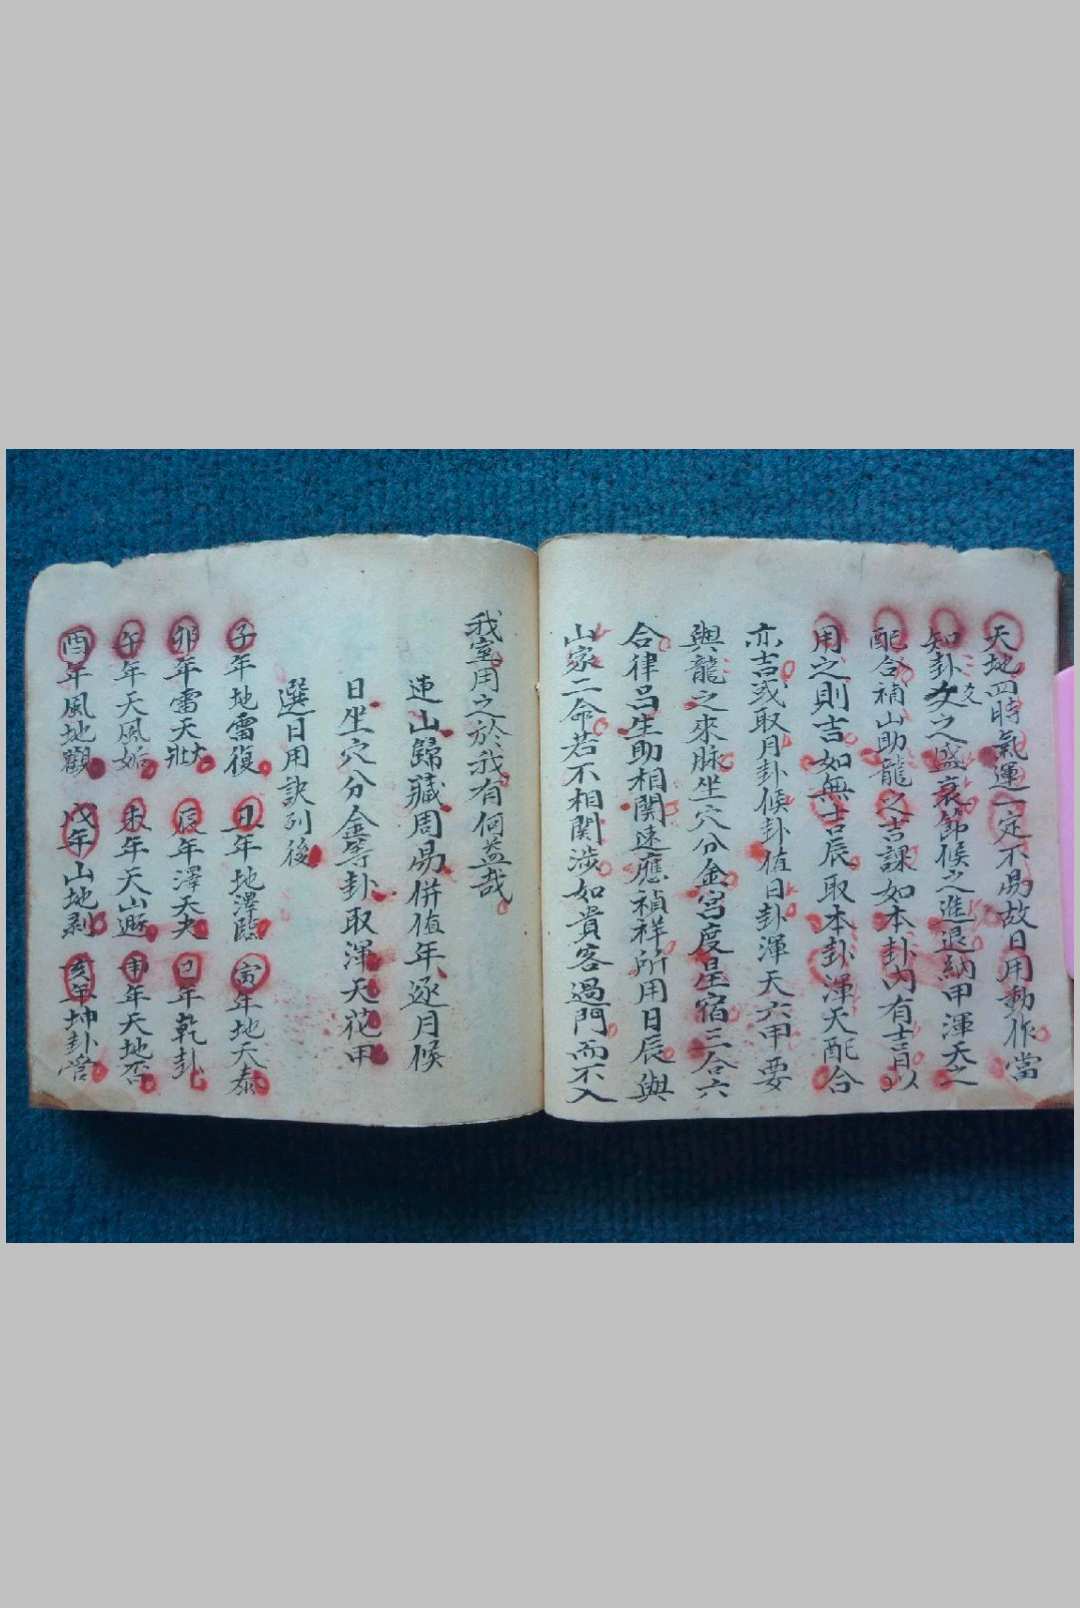 天地四時氣運一定不易故日用動作當
知卦爻之盛衰節候之進退納甲渾天之
配合補山助龍之吉課如本卦內有吉肖以
用之則吉如無吉辰取本卦渾天配合
亦吉或取月卦候卦值日卦渾天六甲要
與龍之來脉坐穴分金宮度星宿三合六
合律呂生助相関速應禎祥所用日辰與
山家二命若不相関涉如貴客過門而不入
我室用之於我有何益哉
連山歸藏周易併值年逐月候
日坐穴分金等卦取渾天花甲
選日用訣列後
子年地雷復 丑年地澤臨 寅年地天泰
卯年雷天大壯 辰年澤天夬 巳年乾卦
午年天風姤 未年天山遯 申年天地否
酉年風地觀 戌年山地剥 亥年坤卦管